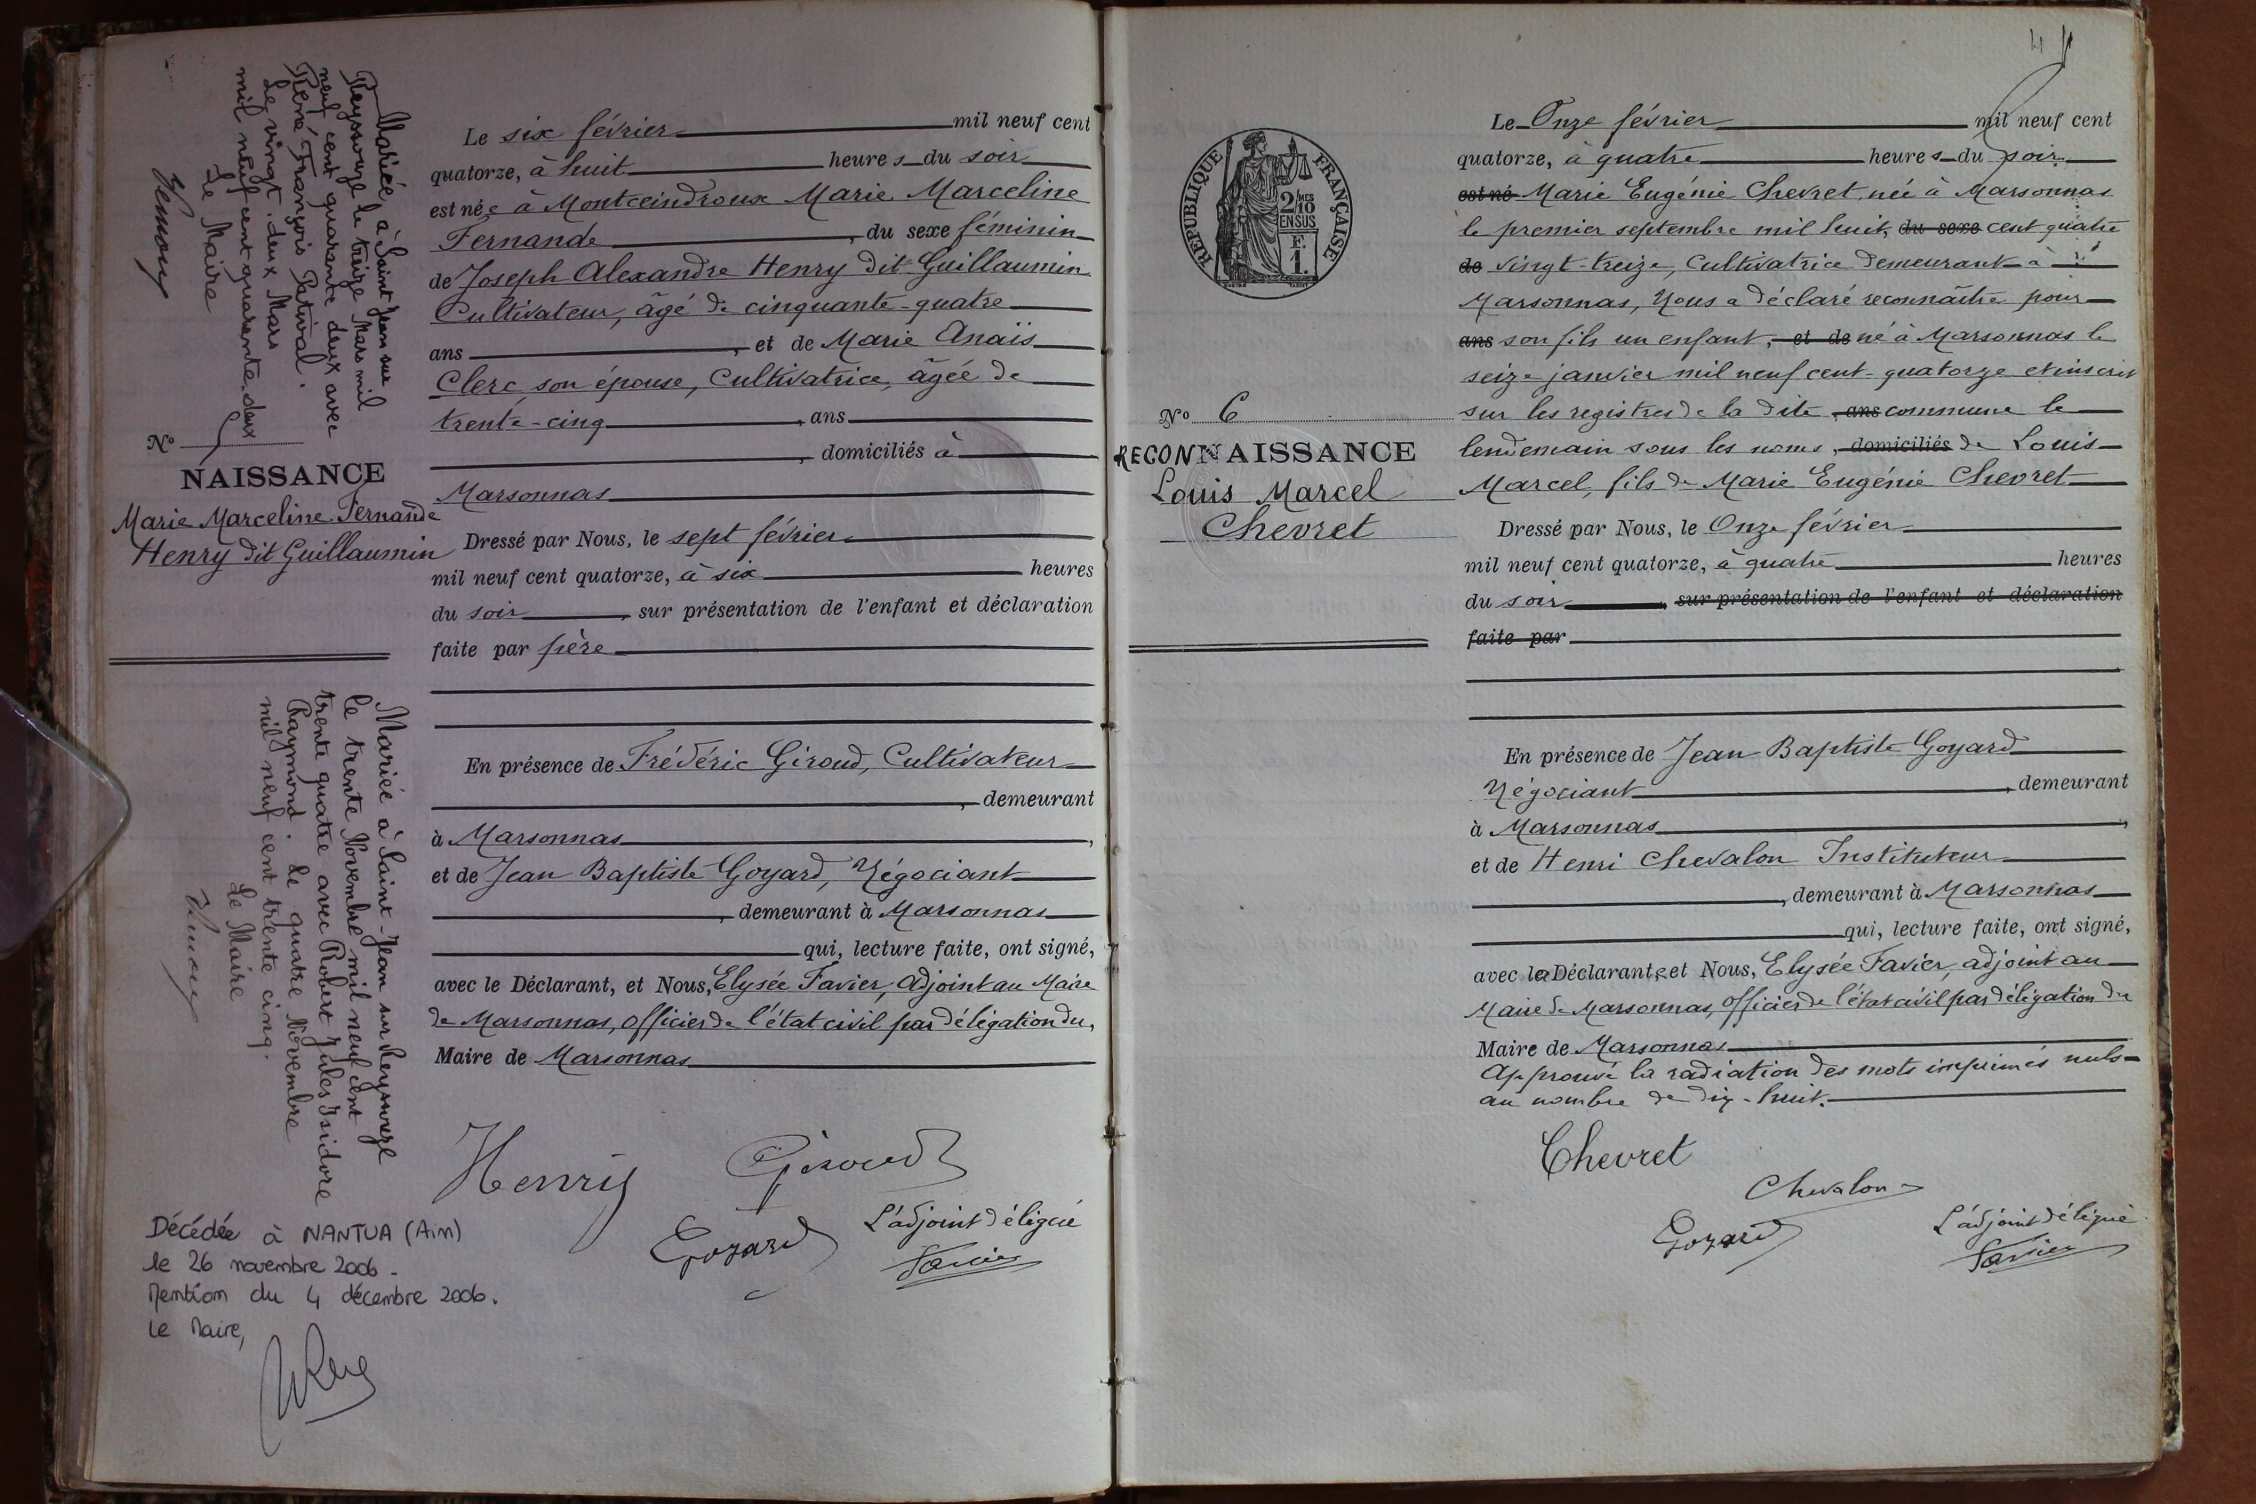 Mariée à Saint Jean sur
Reyssouze le treize Mars mil
neuf cent quarante deux avec
René François Pativai.
Le vingt-deux Mars
mil neuf cent quarante-deux
Le Maire
N° 5
NAISSANCE
Marie Marceline Fernande
Henry dit Guillaumin
Mariée à Saint-Jean sur Reyssouze
le trente Novembre mil neuf cent
trente quatre avec Robert Jules Isidore
Raymond. Le quatre Novembre
mil neuf cent trente cinq.
Le Maire
Décédée à NANTUA (Ain)
le 26 novembre 2006.
Mention du 4 décembre 2006.
Le Maire,
Le six février mil neuf cent
quatorze, à huit heures du soir
est née à Montceindroux Marie Marceline
Fernande, du sexe féminin
de Joseph Alexandre Henry dit Guillaumin
Cultivateur, âgé de cinquante-quatre
ans, et de Marie Anaïs
Clerc son épouse, Cultivatrice, âgée de
trente-cinq, ans
, domiciliés à
Marsonnas
Dressé par Nous, le sept février
mil neuf cent quatorze, à six heures
du soir, sur présentation de l'enfant et déclaration
faite par père
En présence de Frédéric Giroud, Cultivateur
, demeurant
à Marsonnas,
et de Jean Baptiste Goyard, Négociant
, demeurant à Marsonnas
qui, lecture faite, ont signé,
avec le Déclarant, et Nous, Elysée Favier, adjoint au Maire
de Marsonnas, officier de l'état civil par délégation du,
Maire de Marsonnas
Henry Giroud
Goyard L'adjoint délégué
Favier
4
REPUBLIQUE FRANÇAISE
2/10 MES
EN SUS
F.
1.
N° 6
RECONNAISSANCE
Louis Marcel
Chevret
Le Onze février mil neuf cent
quatorze, à quatre heures du soir
est né Marie Eugénie Chevret, née à Marsonnas
le premier septembre mil huit, du sexe cent quatre
de vingt-treize, Cultivatrice demeurant à
Marsonnas, Nous a déclaré reconnaître pour
ans son fils un enfant, et de né à Marsonnas le
seize janvier mil neuf cent-quatorze et inscrit
sur les registres de la dite, ans commune le
lendemain sous les noms, domiciliés de Louis
Marcel, fils de Marie Eugénie Chevret
Dressé par Nous, le Onze février
mil neuf cent quatorze, à quatre heures
du soir, sur présentation de l'enfant et déclaration
faite par
En présence de Jean Baptiste Goyard
Négociant, demeurant
à Marsonnas,
et de Henri Chevalon Instituteur
, demeurant à Marsonnas
qui, lecture faite, ont signé,
avec la Déclarante, et Nous, Elysée Favier, adjoint au
Maire de Marsonnas, officier de l'état civil par délégation du
Maire de Marsonnas
Approuvé la radiation des mots imprimés nuls
au nombre de dix-huit.
Chevret
Chevalon
Goyard L'adjoint délégué
Favier